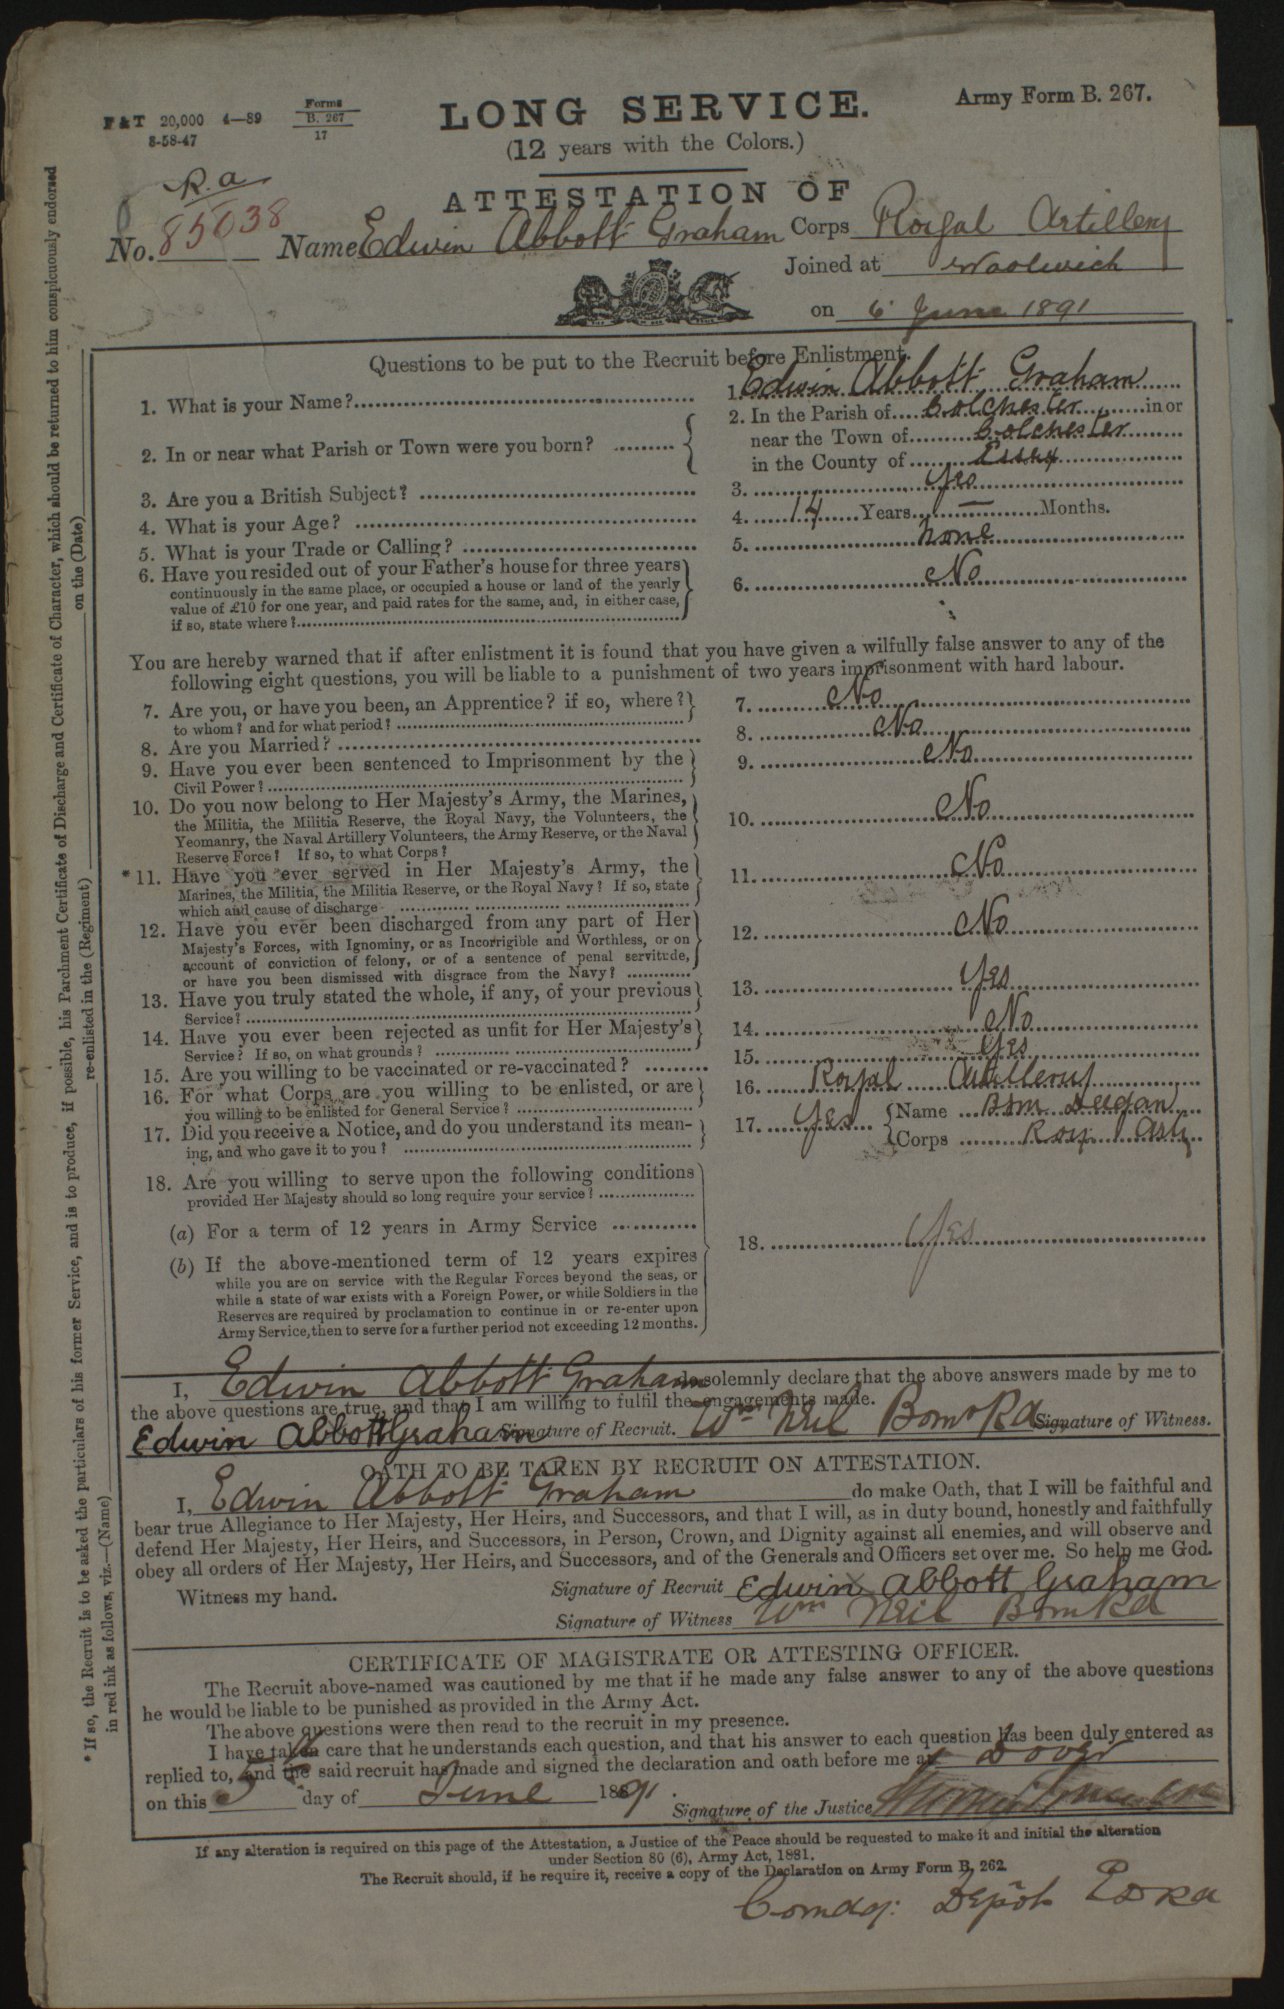 F & T 20,000 4—89 Forms
B. 267
17
8-58-47
LONG SERVICE.
Army Form B. 267.
(12 years with the Colors.)
R.a
ATTESTATION OF
No. 85038 Name Edwin Abbott Graham Corps Royal Artillery
Joined at Woolwich
on 6 June 1891
Questions to be put to the Recruit before Enlistment.
1. What is your Name? 1. Edwin Abbott Graham
2. In or near what Parish or Town were you born? 2. In the Parish of Colchester in or
near the Town of Colchester
in the County of Essex
3. Are you a British Subject? 3. Yes
4. What is your Age? 4. 14 Years — Months.
5. What is your Trade or Calling? 5. none
6. Have you resided out of your Father's house for three years
continuously in the same place, or occupied a house or land of the yearly 6. No
value of £10 for one year, and paid rates for the same, and, in either case,
if so, state where?
You are hereby warned that if after enlistment it is found that you have given a wilfully false answer to any of the
following eight questions, you will be liable to a punishment of two years imprisonment with hard labour.
7. Are you, or have you been, an Apprentice? if so, where? 7. No
to whom? and for what period?
8. Are you Married? 8. No
9. Have you ever been sentenced to Imprisonment by the 9. No
Civil Power?
10. Do you now belong to Her Majesty's Army, the Marines,
the Militia, the Militia Reserve, the Royal Navy, the Volunteers, the 10. No
Yeomanry, the Naval Artillery Volunteers, the Army Reserve, or the Naval
Reserve Force? If so, to what Corps?
*11. Have you ever served in Her Majesty's Army, the 11. No
Marines, the Militia, the Militia Reserve, or the Royal Navy? If so, state
which and cause of discharge
12. Have you ever been discharged from any part of Her 12. No
Majesty's Forces, with Ignominy, or as Incorrigible and Worthless, or on
account of conviction of felony, or of a sentence of penal servitude,
or have you been dismissed with disgrace from the Navy?
13. Have you truly stated the whole, if any, of your previous 13. Yes
Service?
14. Have you ever been rejected as unfit for Her Majesty's 14. No
Service? If so, on what grounds?
15. Are you willing to be vaccinated or re-vaccinated? 15. Yes
16. For what Corps are you willing to be enlisted, or are 16. Royal Artillery
you willing to be enlisted for General Service?
17. Did you receive a Notice, and do you understand its mean- 17. Yes Name BSM Deegan
ing, and who gave it to you? Corps Roy Arty
18. Are you willing to serve upon the following conditions
provided Her Majesty should so long require your service?
(a) For a term of 12 years in Army Service 18. Yes
(b) If the above-mentioned term of 12 years expires
while you are on service with the Regular Forces beyond the seas, or
while a state of war exists with a Foreign Power, or while Soldiers in the
Reserves are required by proclamation to continue in or re-enter upon
Army Service, then to serve for a further period not exceeding 12 months.
I, Edwin Abbott Graham do solemnly declare that the above answers made by me to
the above questions are true, and that I am willing to fulfil the engagements made.
Edwin Abbott Graham Signature of Recruit. Wm Neil Bomr RA Signature of Witness.
OATH TO BE TAKEN BY RECRUIT ON ATTESTATION.
I, Edwin Abbott Graham do make Oath, that I will be faithful and
bear true Allegiance to Her Majesty, Her Heirs, and Successors, and that I will, as in duty bound, honestly and faithfully
defend Her Majesty, Her Heirs, and Successors, in Person, Crown, and Dignity against all enemies, and will observe and
obey all orders of Her Majesty, Her Heirs, and Successors, and of the Generals and Officers set over me. So help me God.
Witness my hand. Signature of Recruit Edwin Abbott Graham
Signature of Witness Wm Neil Bomr RA
CERTIFICATE OF MAGISTRATE OR ATTESTING OFFICER.
The Recruit above-named was cautioned by me that if he made any false answer to any of the above questions
he would be liable to be punished as provided in the Army Act.
The above questions were then read to the recruit in my presence.
I have taken care that he understands each question, and that his answer to each question has been duly entered as
replied to, and the said recruit has made and signed the declaration and oath before me at Dover
on this 5th day of June 1891.
Signature of the Justice
If any alteration is required on this page of the Attestation, a Justice of the Peace should be requested to make it and initial the alteration
under Section 80 (6), Army Act, 1881.
The Recruit should, if he require it, receive a copy of the Declaration on Army Form B. 262.
Comdg: Depôt EDRA
* If so, the Recruit is to be asked the particulars of his former Service, and is to produce, if possible, his Parchment Certificate of Discharge and Certificate of Character, which should be returned to him conspicuously endorsed
in red ink as follows, viz.—(Name) re-enlisted in the (Regiment) on the (Date)